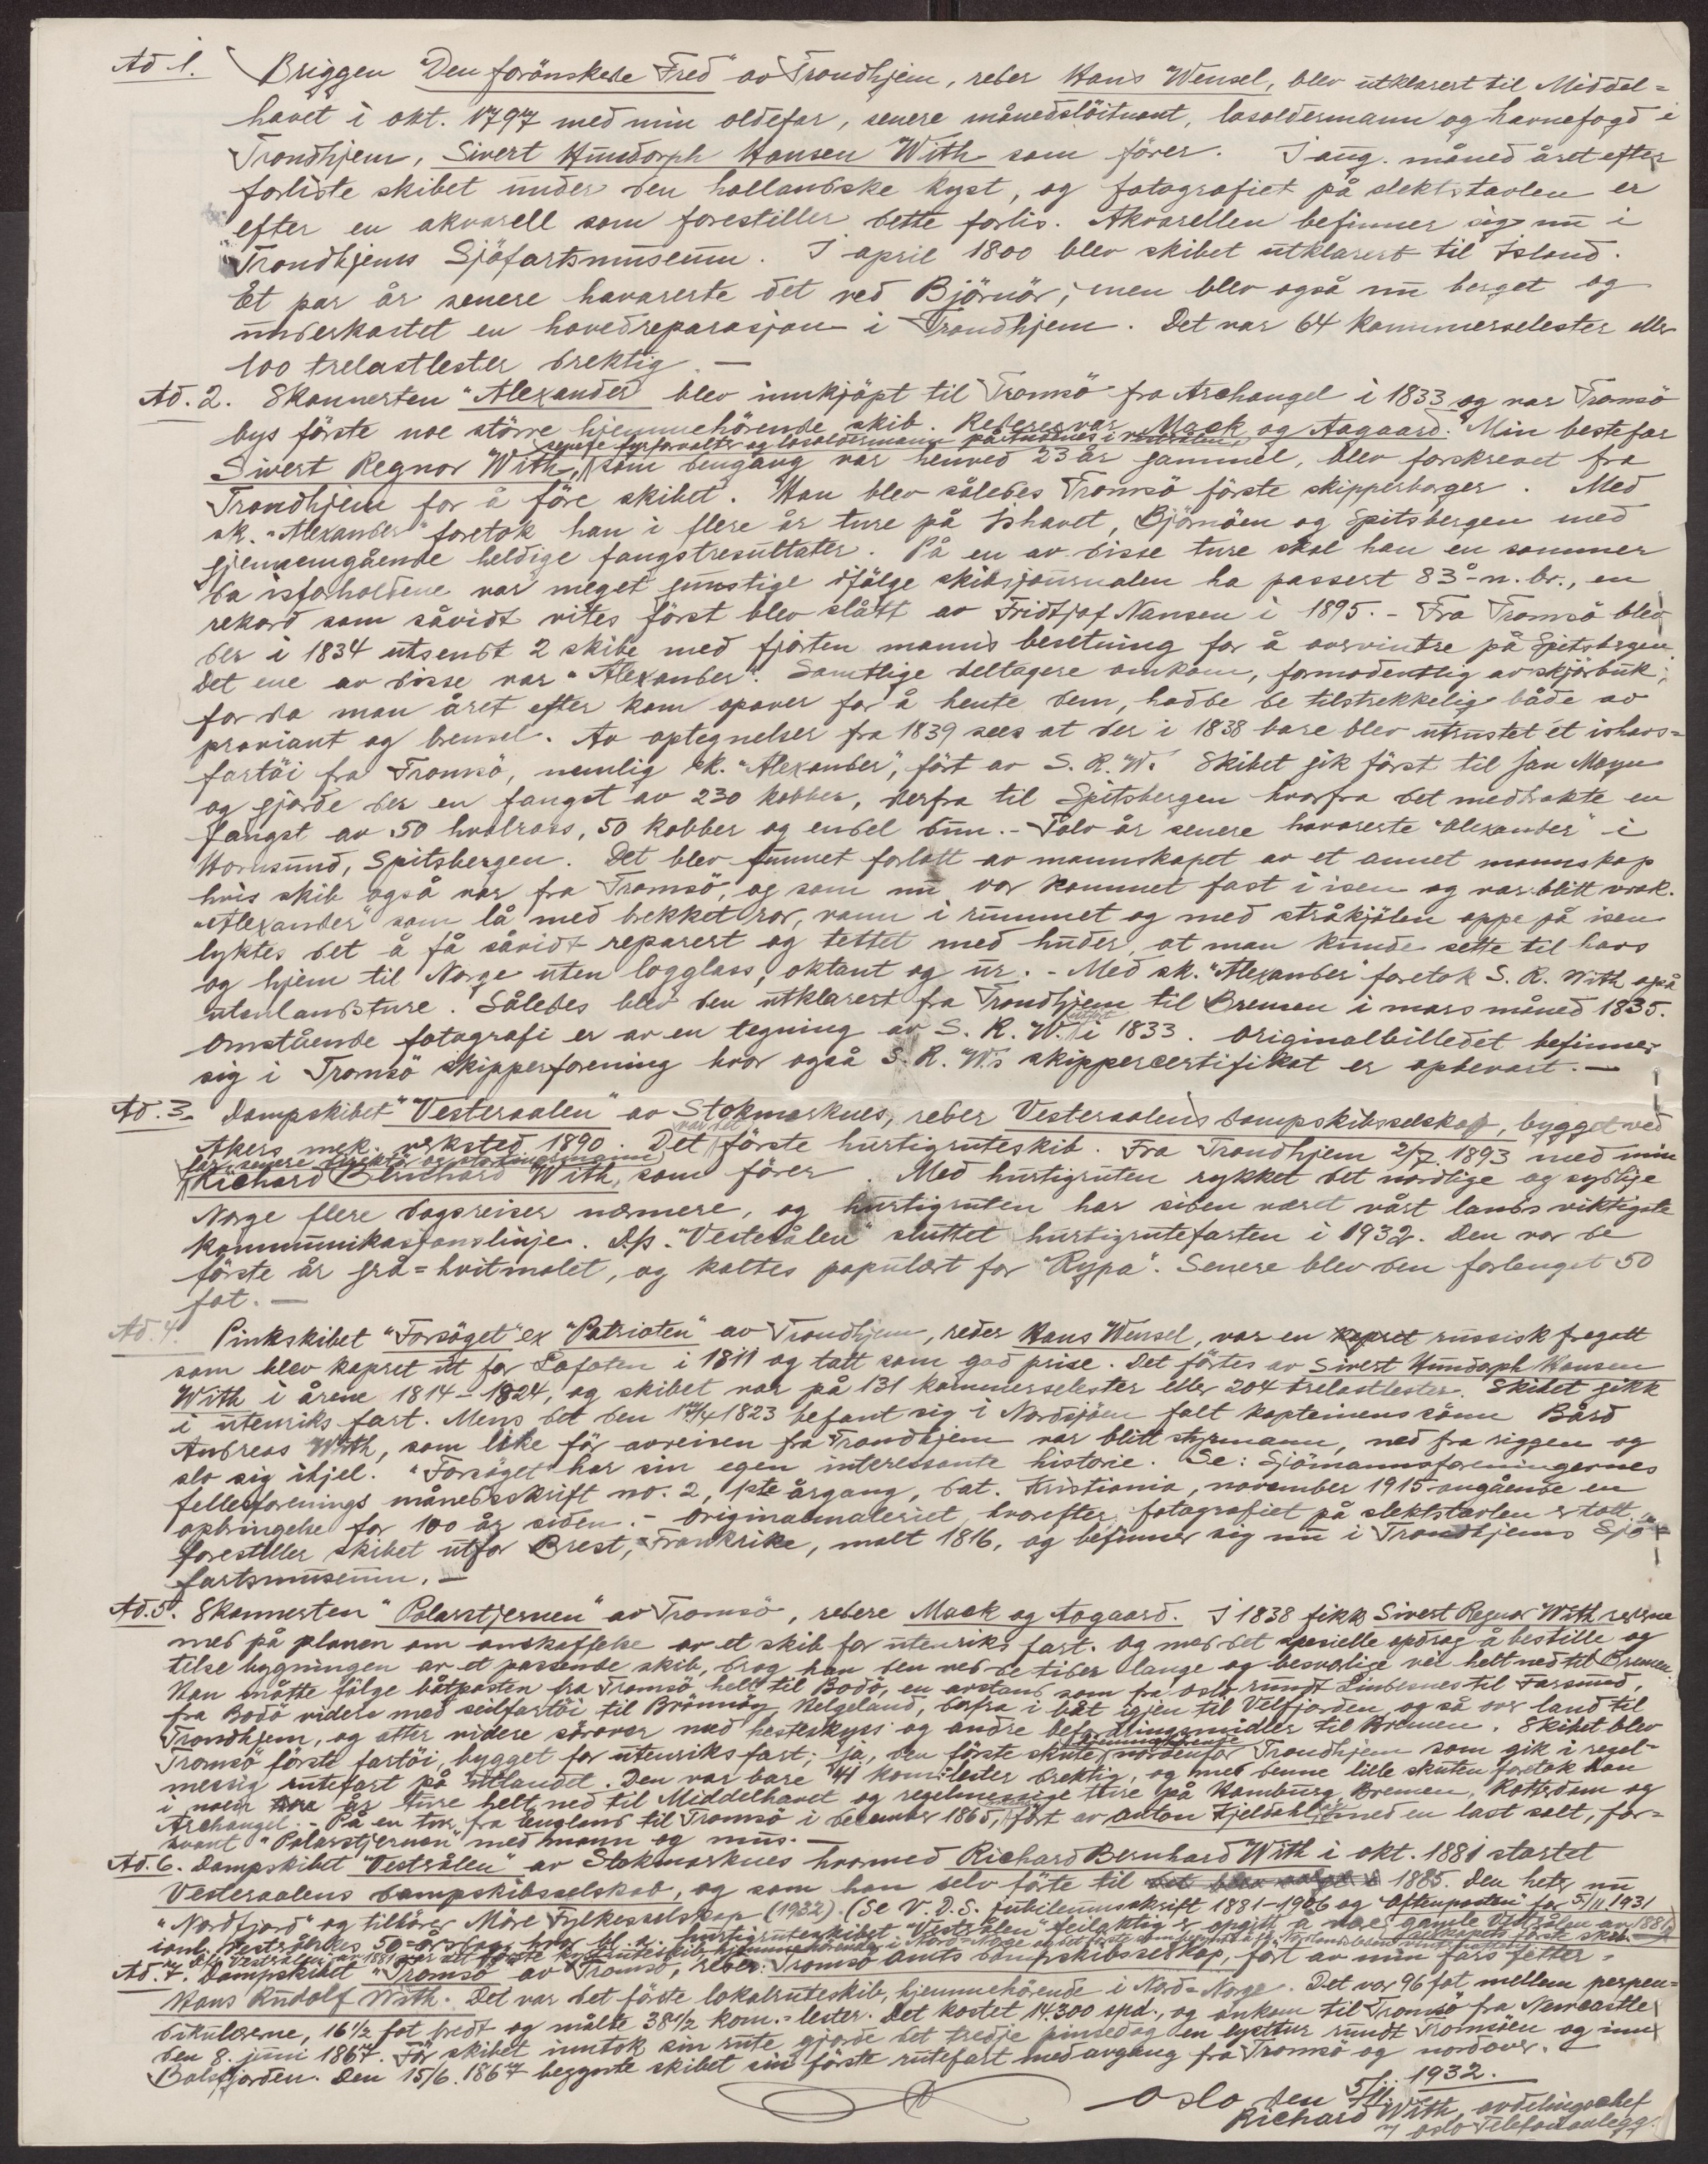 Ad 1. Briggen "Den forönskede Fred" av Trondhjem, reder Hans Wensel, blev utklarert til Middel=
havet i okt. 1797 med min oldefar, senere månedslöitnant, losoldermann og havnefogd i
Trondhjem, Sivert Hundorph Hansen With som förer. I aug. måned året efter
forliste skibet under den hollandske kyst, og fotografiet på slektstavlen er
efter en akvarell som forestiller dette forlis. Akvarellen befinner sig nu i
Trondhjems Sjöfartsmuseum. I april 1800 blev skibet utklarert til Island.
Et par år senere havarerte det ved Björnör, men blev også nu berget og
underkastet en hovedreparasjon i Trondhjem. Det var 64 kommerselester eller
100 trelastlester drektig. —
Ad. 2. Skonnerten "Alexander" blev innkjöpt til Tromsö fra Archangel i 1833 og var Tromsö
bys förste noe större hjemmehörende skib. Redere var Mack og Aagaard. Min bestefar
senere fyrforvalter og losoldermann på
Sivert Regnor With, som dengang var henved 23 år gammel, blev forskrevet fra
Trondhjem for å före skibet. Han blev således Tromsö förste skipperborger. Med
sk. "Alexander" foretok han i flere år ture på Ishavet, Björnöen og Spitsbergen med
gjennemgående heldige fangstresultater. På en av disse ture skal han en sommer
da isforholdene var meget gunstige ifölge skibsjournalen ha passert 83°-n. br., en
rekord som såvidt vites först blev slått av Fridtjof Nansen i 1895. - Fra Tromsö blev
der i 1834 utsendt 2 skibe med fjorten manns besetning for å overvintre på Spitsbergen.
Det ene av disse var "Alexander". Samtlige deltagere omkom, formodentlig av skjörbuk,
for da man året efter kom opover for å hente dem, hadde de tilstrekkelig både av
proviant og brensel. Av optegnelser fra 1839 sees at der i 1838 bare blev utrustet ét ishavs=
fartöi fra Tromsö, nemlig sk. "Alexander", fört av S. R. W. Skibet gik först til Jan Mayen
og gjorde der en fangst av 230 kobber, derfra til Spitsbergen hvorfra det medbrakte en
fangst av 50 hvalross, 50 kobber og endel dun. - Tolv år senere havarerte "Alexander" i
Hornsund, Spitsbergen. Det blev funnet forlatt av mannskapet av et annet mannskap
hvis skib også var fra Tromsö, og som nu var kommet fast i isen og var blitt vrak.
"Alexander" som lå med brekket ror, vann i rummet og med stråkjölen oppe på isen
lyktes det å få såvidt reparert og tettet med huder, at man kunde sette til havs
og hjem til Norge uten logglass, oktant og ur. - Med sk. "Alexander" foretok S. R. With også
utenlandsture. Således blev den utklarert fra Trondhjem til Bremen i mars måned 1835.
Omstående fotografi er av en tegning av S. R. W. utfört i 1833. Originalbilledet befinner
sig i Tromsö skipperforening hvor også S. R. W.s skippercertifikat er opbevart. —
Ad. 3. Dampskibet "Vesteraalen" av Stokmarknes, reder Vesteraalens dampskibsselskap, bygget ved
Akers mek. verksted 1890. Det var det förste hurtigruteskib. Fra Trondhjem 2/7. 1893 med min
far, senere direktör og stortingsmann,
Richard Bernhard With, som förer. Med hurtigruten rykket det nordlige og sydlige
Norge flere dagsreiser nærmere, og hurtigruten har siden været vårt lands viktigste
kommunikasjonslinje. D/s. "Vesterålen" sluttet hurtigrutefarten i 1932. Den var de
förste år grå=hvitmalet, og kaltes populært for "Rypa". Senere blev den forlenget 50
fot. —
Ad. 4. Pinkskibet "Forsöget" ex "Patrioten" av Trondhjem, reder Hans Wensel, var en kapret russisk fregatt
som blev kapret ut for Lofoten i 1811 og tatt som god prise. Det förtes av Sivert Hundorph Hansen
With i årene 1814-1824, og skibet var på 131 kommerselester eller 204 trelastlester. Skibet gikk
i utenriks fart. Mens det den 17/4 1823 befant sig i Nordsjöen falt kapteinens sönn Bård
Andreas With, som like för avreisen fra Trondhjem var blitt styrmann, ned fra riggen og
slo sig ihjel. "Forsöget" har sin egen interessante historie. Se: Sjömannsforeningernes
fellesforenings månedsskrift no. 2, 1ste årgang, dat. Kristiania, november 1915 angående en
opbringelse for 100 år siden. - Originalmaleriet, hvorefter fotografiet på slektstavlen er tatt,
forestiller skibet utfor Brest, Frankrike, malt 1816, og befinner sig nu i Trondhjems Sjö=
fartsmuseum. —
Ad. 5. Skonnerten "Polarstjernen" av Tromsö, redere Mack og Aagaard. I 1838 fikk Sivert Regnor With rederne
med på planen om anskaffelse av et skib for utenriks fart. Og med det spesielle opdrag å bestille og
tilse bygningen av et passende skib, drog han den ved de tider lange og besværlige vei helt ned til Bremen.
Han måtte fölge båtposten fra Tromsö helt til Bodö, en avstand som fra Oslo rundt Lindesnes til Farsund,
fra Bodö videre med seilfartöi til Brönnöy, Helgeland, derfra i båt igjen til Velfjorden, og så over land til
Trondhjem, og atter videre sörover med hesteskyss og andre befordringsmidler til Bremen. Skibet blev
Tromsö förste fartöi, bygget for utenriksfart; ja, den förste skute hjemmehörende nordenfor Trondhjem som gik i regel=
messig rutefart på utlandet. Den var bare 41 kom.lester drektig, og med denne lille skuten foretok han
i noen år ture helt ned til Middelhavet og regelmessige ture på Hamburg, Bremen, Rotterdam og
Archangel. - På en tur fra England til Tromsö i december 1865, fört av Anton Kjeldahl med en last salt, for=
svant "Polarstjernen" med mann og mus. —
Ad. 6. Dampskibet "Vestrålen" av Stokmarknes hvormed Richard Bernhard With i okt. 1881 startet
Vesteraalens dampskibsselskab, og som han selv förte til 1885. Den heter nu
"Nordfjord" og tilhörer Möre Fylkesselskap (1932). (Se V. D. S. jubileumsskrift 1881-1906 og "Aftenposten" for 5/11 1931
hvor bl. a. hurtigruteskibet "Vestrålen" feilaktig er opgitt å være gamle Vestrålen av 1881.)
Ad. 7. Dampskibet "Tromsö" av Tromsö, reder: Tromsö amts dampskibsselskap, fört av min fars fetter,
Hans Rudolf With. Det var det förste lokalruteskib, hjemmehörende i Nord=Norge. Det var 96 fot mellem perpen=
dikulærerne, 16 1/2 fot bredt og målte 38 1/2 kom.=lester. Det kostet 14.300 spd., og ankom til Tromsö fra Newcastle
den 8. juni 1867. För skibet inntok sin rute gjorde det tredje pinsedag en lysttur rundt Tromsöen og inn
Balsfjorden. Den 15/6. 1867 begynte skibet sin förste rutefart med avgang fra Tromsö og nordover.
Oslo den 5/11. 1932.
Richard With, avdelingschef
v/ Oslo Telefonanlegg.